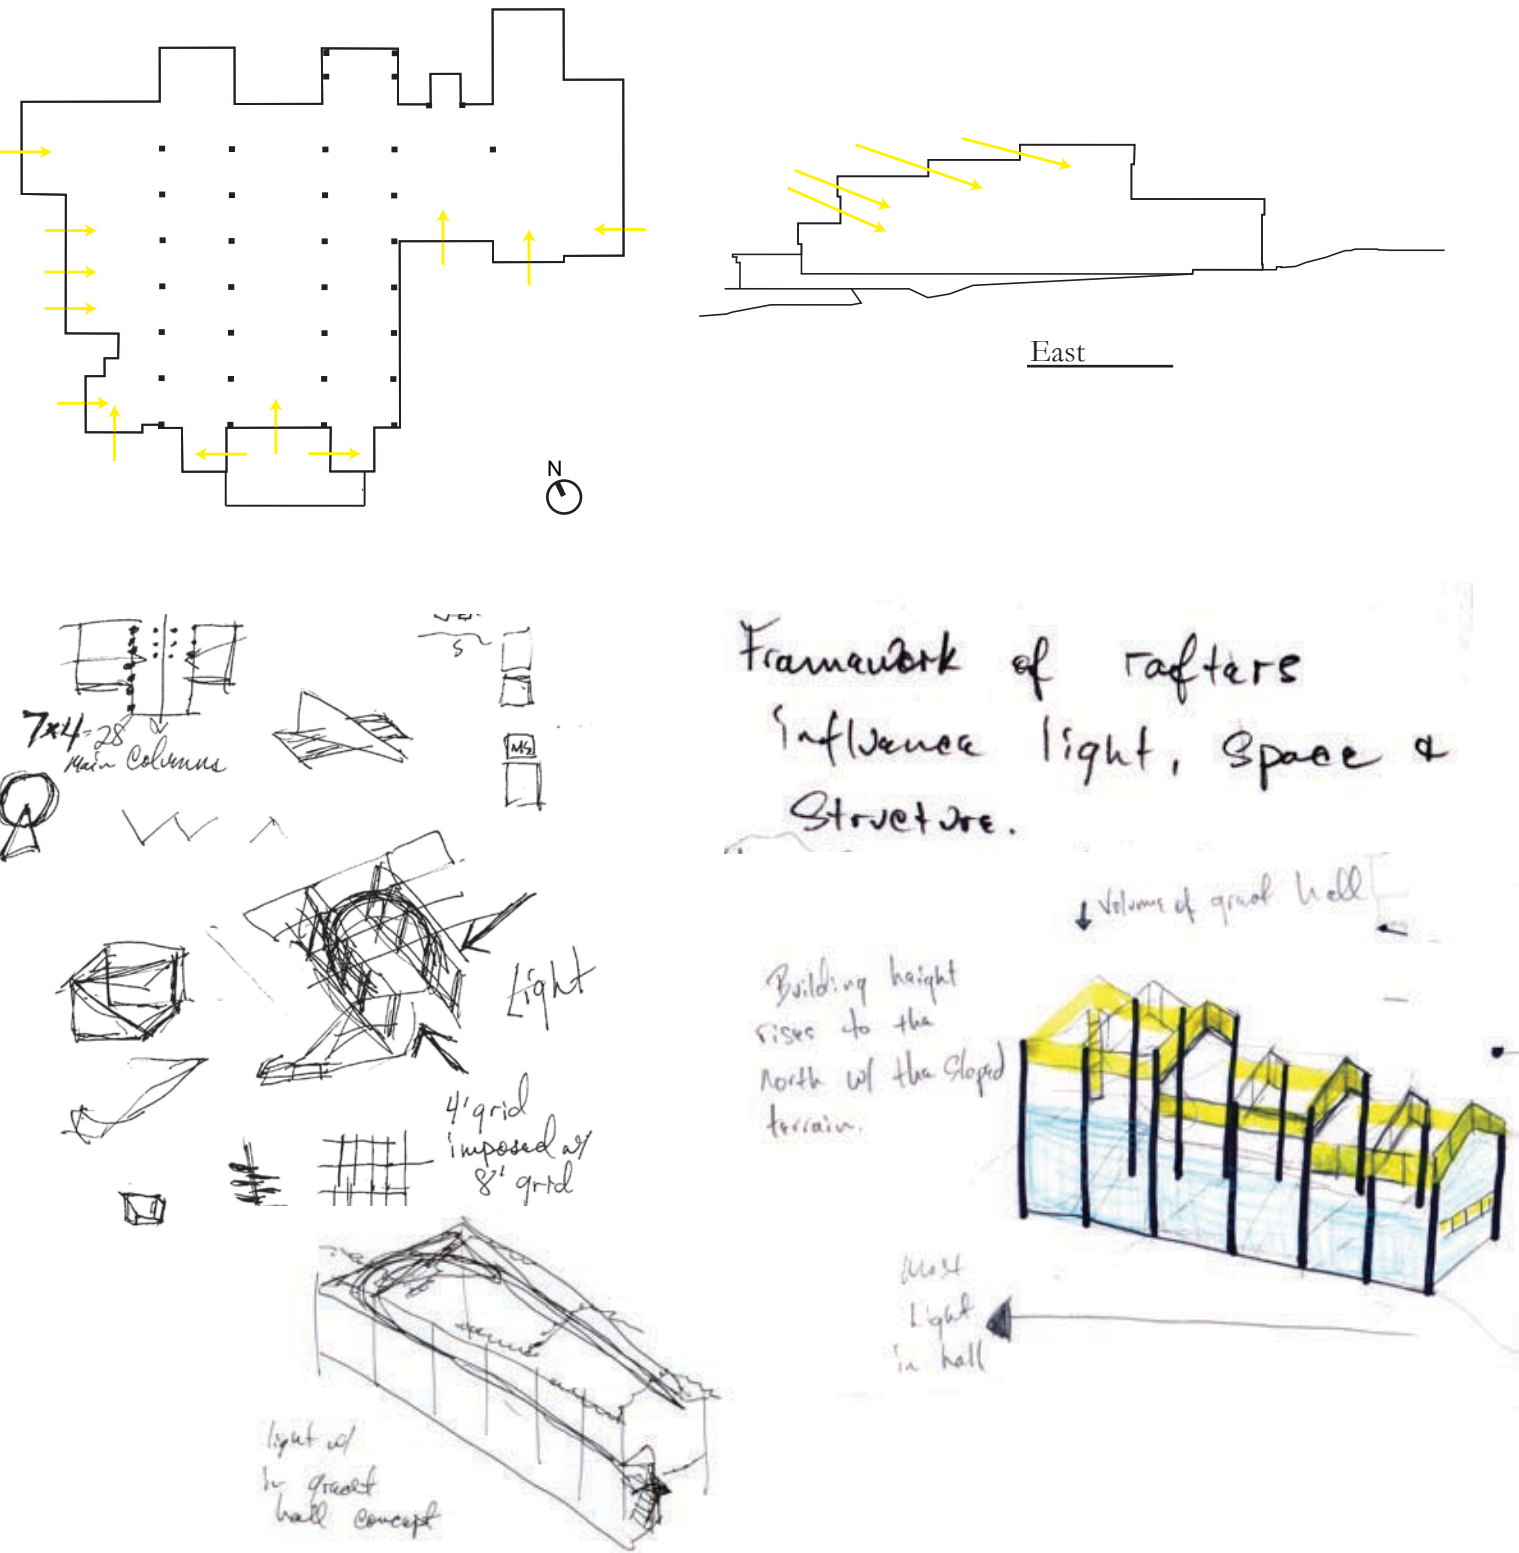 N
East
7x4=28
Main Columns
S
MS
Light
4' grid
imposed w/
8' grid
light w/
in great
hall concept
Framework of rafters
influence light, Space &
Structure.
Volume of great hall
Building height
rises to the
north w/ the sloped
terrain.
Most
Light
in hall